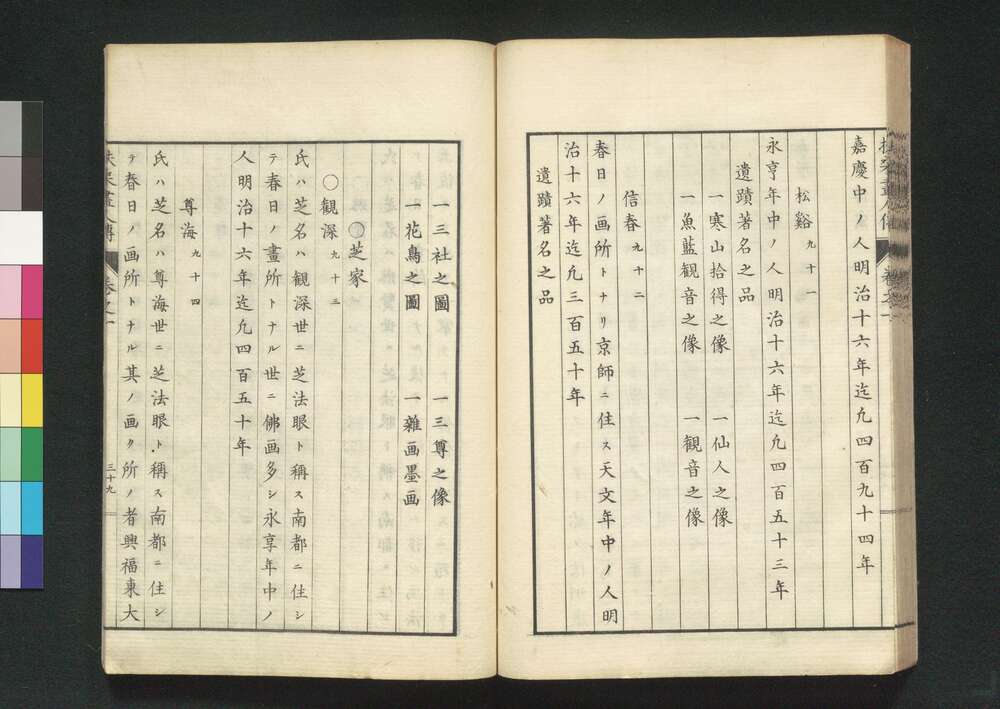 嘉慶中ノ人明治十六年迄凢四百九十四年
松谿 九十一
永享年中ノ人明治十六年迄凢四百五十三年
遺蹟著名之品
一寒山拾得之像 一仙人之像
一魚藍観音之像 一観音之像
信春 九十二
春日ノ画所トナリ京師ニ住ス天文年中ノ人明
治十六年迄凢三百五十年
遺蹟著名之品
一三社之圖 一三尊之像
一花鳥之圖 一雑画墨画
◯芝家
◯観深 九十三
氏ハ芝名ハ観深世ニ芝法眼ト稱ス南都ニ住シ
テ春日ノ畫所トナル世ニ佛画多シ永享年中ノ
人明治十六年迄凢四百五十年
尊海 九十四
氏ハ芝名ハ尊海世ニ芝法眼ト稱ス南都ニ住シ
テ春日ノ画所トナル其ノ画ク所ノ者興福東大
三十九